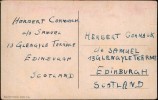 HERBERT CORMACK
c/o SAMUEL
13 GLENGYLE TERRACE
EDINBURGH
SCOTLAND
HERBERT CORMACK
c/o SAMUEL
13 GLENGYLE TERRACE
EDINBURGH
SCOTLAND